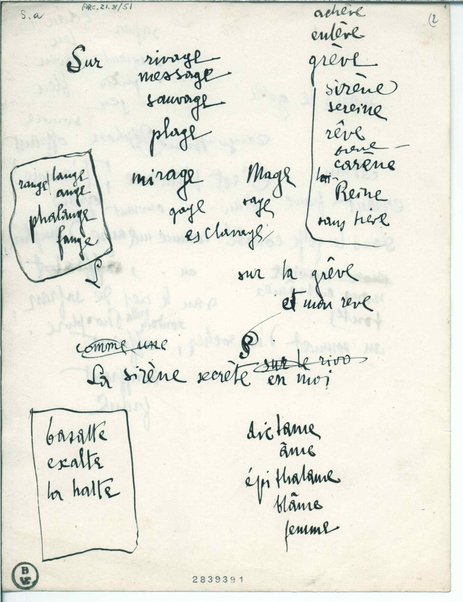 S.a
ARC.21.8/51
(2
achève
enlève
grève
Sur rivage
message
sauvage
plage
mirage
gage
esclavage
Mage
sage
sirène
sereine
rêve
carène
la Reine
sans trève
range lange
ange
phalange
fange
sur la grève
et mon reve
comme une
sur le rivo
La sirène secrète en moi
basalte
exalte
la halte
dictame
âme
épithalame
blâme
femme
2839391